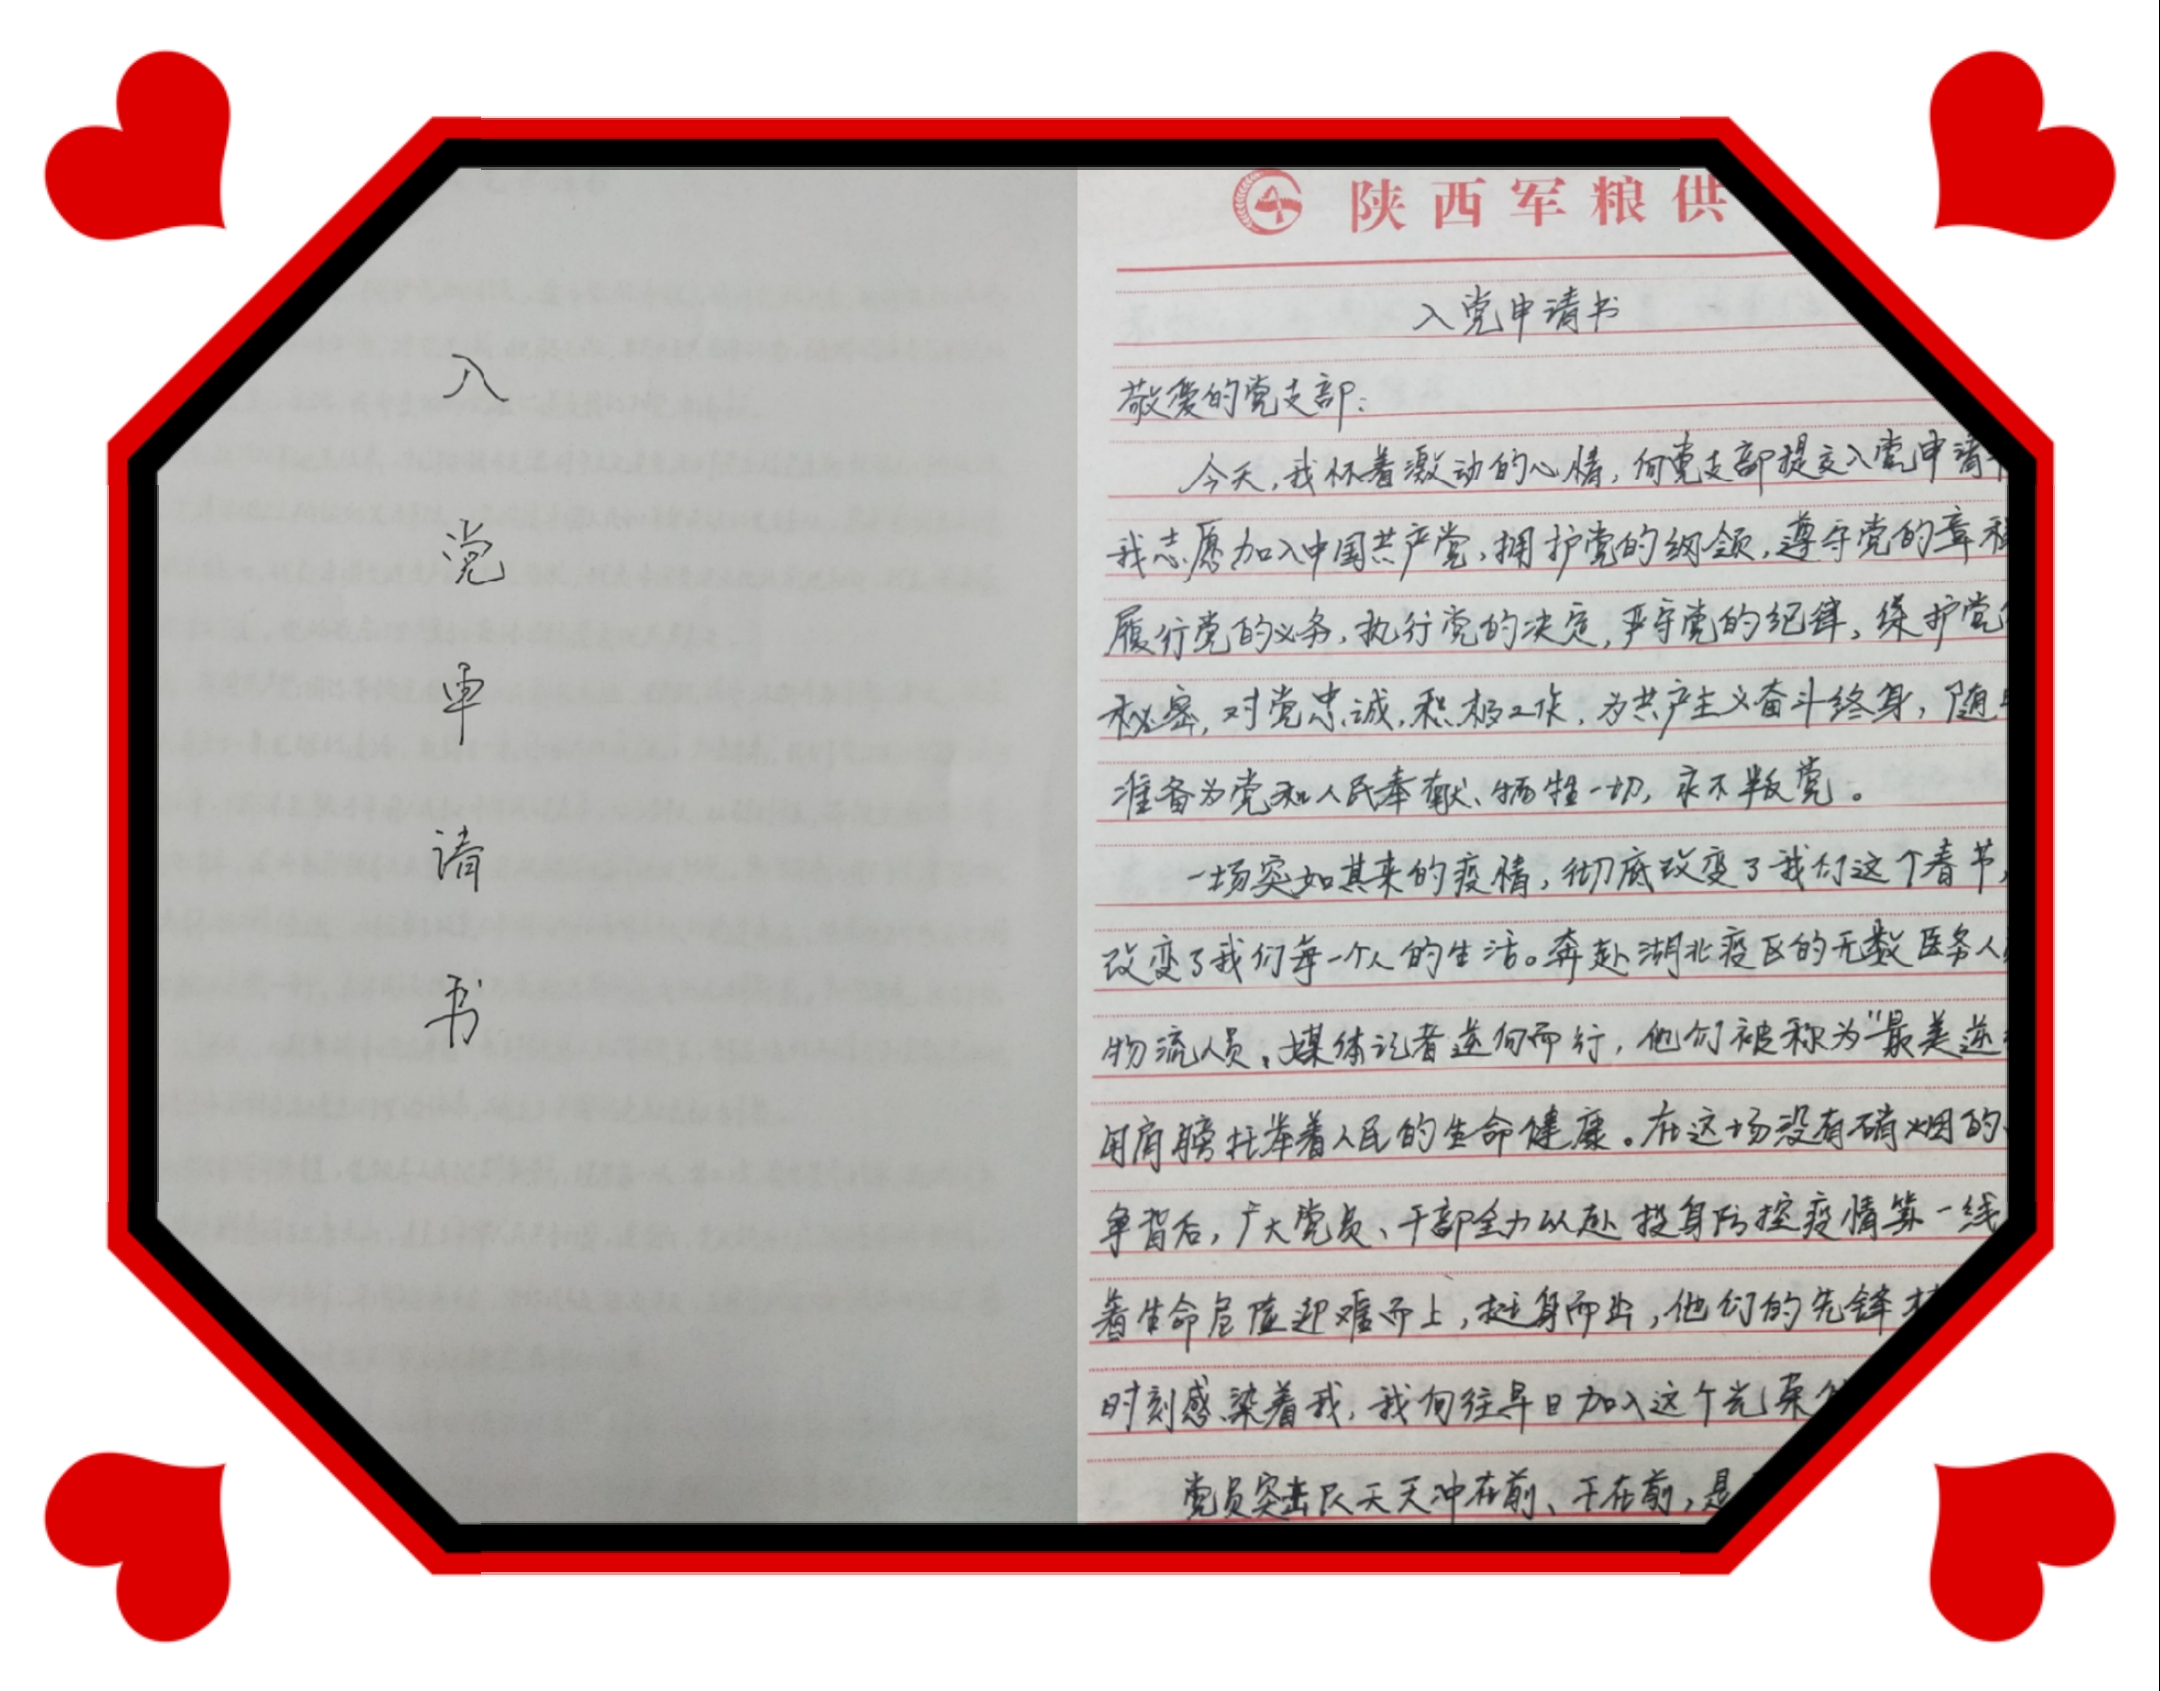 入
党
申
请
书
陕西军粮供
入党申请书
敬爱的党支部：
今天，我怀着激动的心情，向党支部提交入党申请书
我志愿加入中国共产党，拥护党的纲领，遵守党的章程
履行党的义务，执行党的决定，严守党的纪律，保护党的
秘密，对党忠诚，积极工作，为共产主义奋斗终身，随时
准备为党和人民奉献、牺牲一切，永不叛党。
一场突如其来的疫情，彻底改变了我们这个春节，
改变了我们每一个人的生活。奔赴湖北疫区的无数医务人员
物流人员、媒体记者逆向而行，他们被称为“最美逆
用肩膀托举着人民的生命健康。在这场没有硝烟的
争背后，广大党员、干部全力以赴投身防控疫情第一线
着生命危险迎难而上，挺身而出，他们的先锋
时刻感染着我，我向往早日加入这个光荣
党员突击队天天冲在前、干在前，是